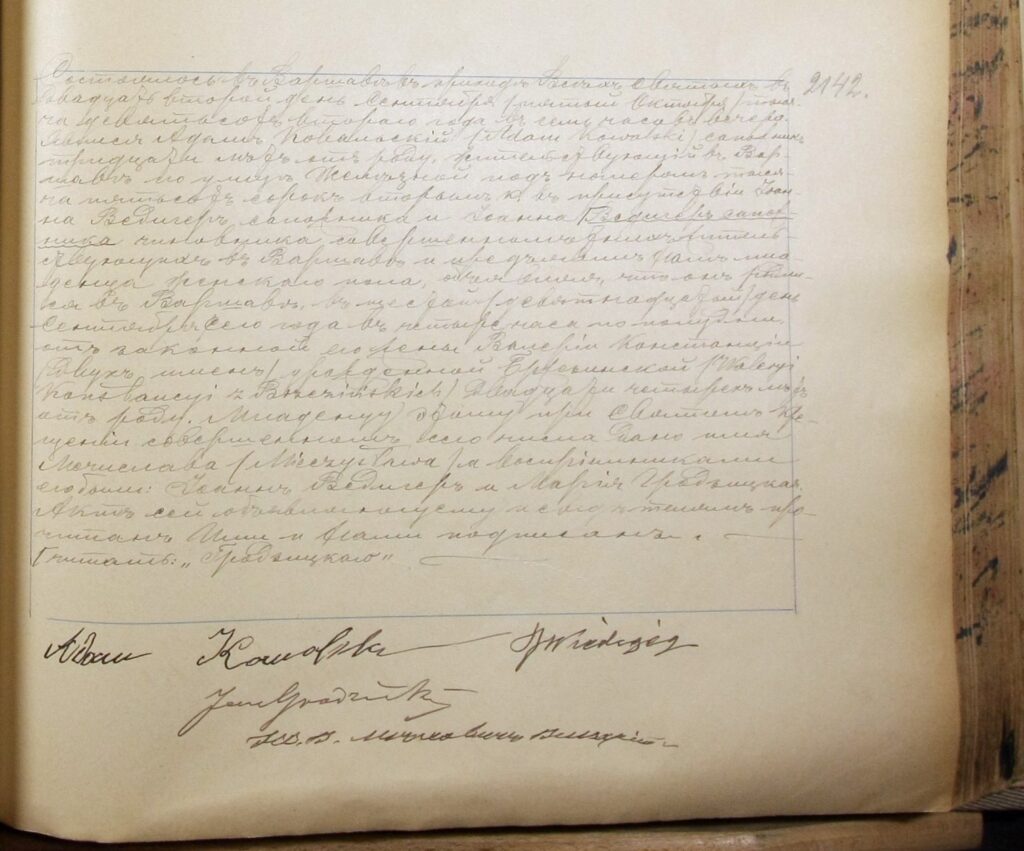 Состоялось въ Варшавѣ въ приходѣ Всѣхъ Святыхъ въ 2142.
двадцать второй день Сентября /пятый Октября/ тыся-
ча девятьсотъ второго года въ семь часовъ вечера.
Явился Адамъ Ковальскій /Adam Kowalski/ сапожникъ
тридцати лѣтъ отъ роду, жительствующій въ Вар-
шавѣ по улицѣ Желѣзной подъ номеромъ тыся-
ча пятьсотъ сорокъ вторымъ въ присутствіи Іоан-
на Ведигеръ, сапожника и Іоанна [Ведигеръ сапож-
ника чиновника, совершеннолѣтнихъ житель-
ствующихъ въ Варшавѣ и предъявилъ намъ мла-
денца женскаго пола, объявляя, что онъ родил-
ся въ Варшавѣ, въ шестой /девятнадцатый/ день
Сентября сего года въ четыре часа по полудни,
отъ законной его жены Валеріи Констанціи
двухъ именъ, урожденной Бржезинской /Waleryi
Konstancyi z Brzezińskich/ двадцати четырехъ лѣтъ
отъ роду. Младенцу этому при Святомъ кре-
щеніи совершенномъ сего числа дано имя
Мечислава /Mieczysława/ а воспріемниками
его были: Іоаннъ Ведигеръ и Марія Гродзицкая.
Актъ сей объявляющему и свидѣтелямъ про-
читанъ Ими и Нами подписанъ.
[читать: „Гродзицкаго"
Adam Kowalski
Jan Grodzicki